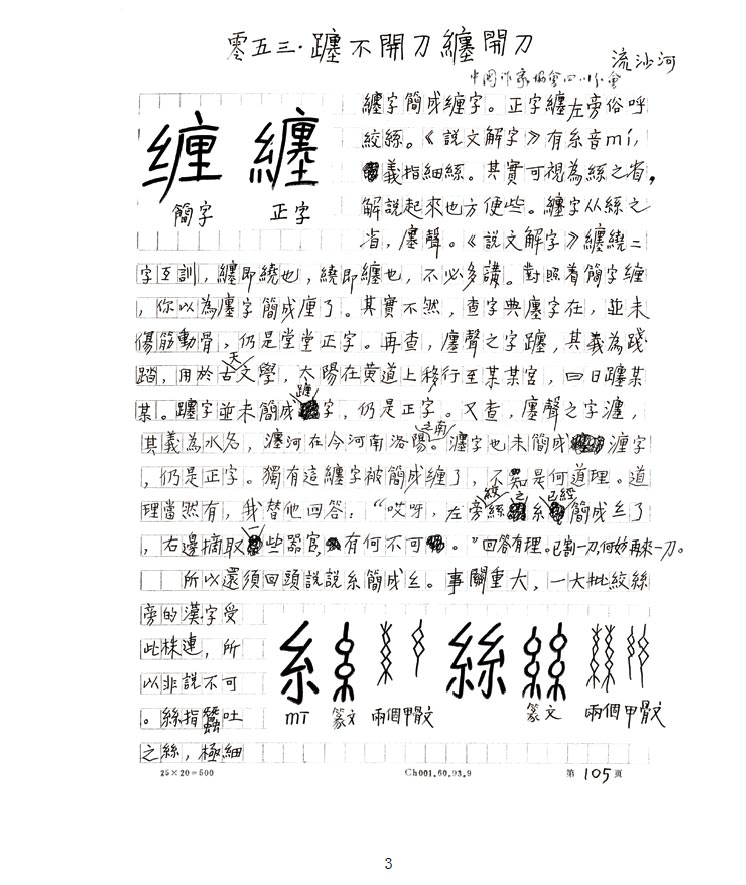 零五三·躔不開刀纏開刀
流沙河
中國作家協會四川分會
纏字簡成缠字。正字纏左旁俗呼
绞絲。《説文解字》有糸音mí,
義指細絲。其實可視為絲之省,
解説起來也方便些。纏字从絲之
省,廛聲。《説文解字》纏繞二
缠 纏
簡字 正字
字互訓,纏即繞也,繞即纏也,不必多講。對照着簡字缠
,你以為廛字簡成厘了。其實不然,查字典廛字在,並未
傷筋動骨,仍是堂堂正字。再查,廛聲之字躔,其義為踐
踏,用於古天文學,太陽在黄道上移行至某某宫,曰日躔某
某。躔字並未簡成躔字,仍是正字。又查,廛聲之字瀍,
其義為水名,瀍河在今河南洛陽之南。瀍字也未簡成字
,仍是正字。獨有這纏字被簡成缠了,不知是何道理。道
理當然有,我替他回答:“哎呀,左旁绞絲之糸已經簡成纟了
,右邊摘取一些器官,有何不可。”回答有理。已割一刀,何妨再來一刀。
所以還須回頭説説糸簡成纟。事關重大,一大批絞絲
旁的漢字受
此株連,所
以非説不可
。絲指蠶吐
之絲,極細
糸 絲
mī 篆文 兩個甲骨文 篆文 兩個甲骨文
25×20=500 Ch001.60.93.9 第105頁
3